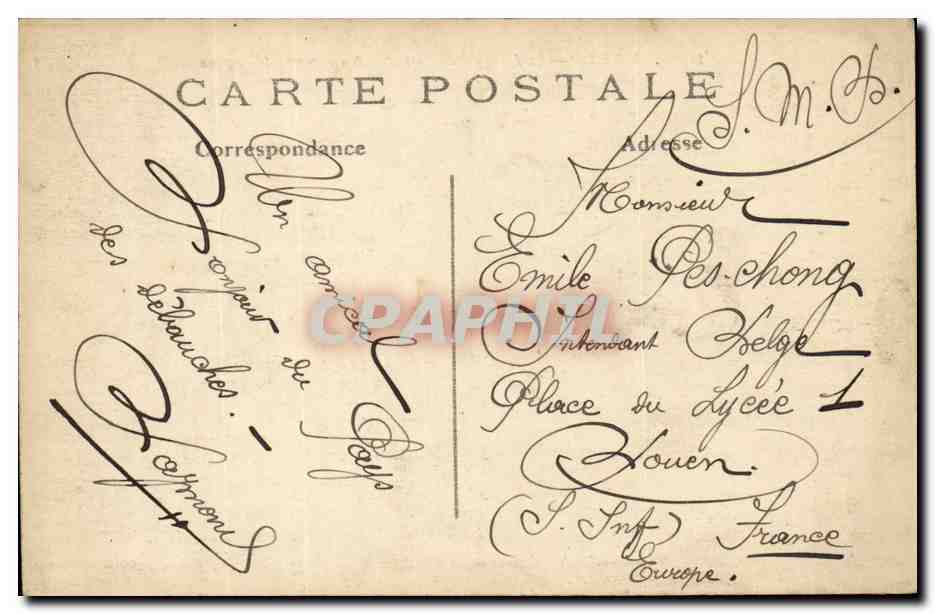 CARTE POSTALE
S. M. B.
Correspondance
Adresse
Un amical
Bonjour du Pays
des débauches. -
Raymond
Monsieur
Emile Pes-chong
Intendant Belge
Place du Lycée 1
Rouen.
(S. Inf)
France
Europe.
CPAPHIL